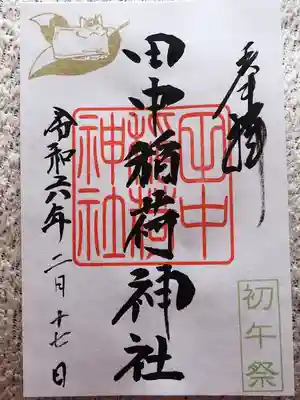 奉拝
田中稲荷神社
田中
稲荷
神社
令和六年二月十七日
初午祭